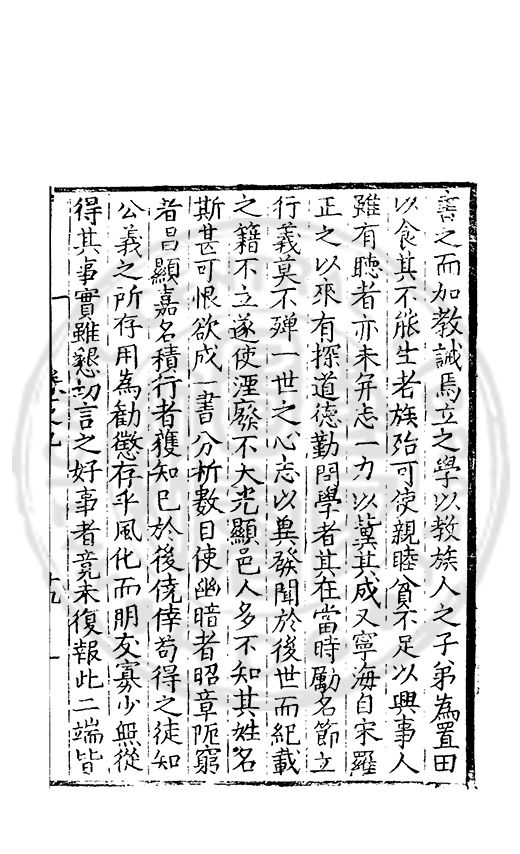 書之而加教誡焉立之學以教族人之子弟為置田
以食其不能生者族殆可使親睦貧不足以興事人
雖有聽者亦未并志一力以冀其成又寧海自宋羅
正之以來有探道德勤問學者其在當時勵名節立
行義莫不殫一世之心志以兾發聞於後世而紀載
之籍不立遂使湮廢不大光顯邑人多不知其姓名
斯甚可恨欲成一書分析數目使幽暗者昭章阨窮
者昌顯嘉名積行者獲知已於後僥倖苟得之徒知
公義之所存用為勸懲存乎風化而朋友寡少無從
得其事實雖懇切言之好事者竟未復報此二端皆
卷之九 十九